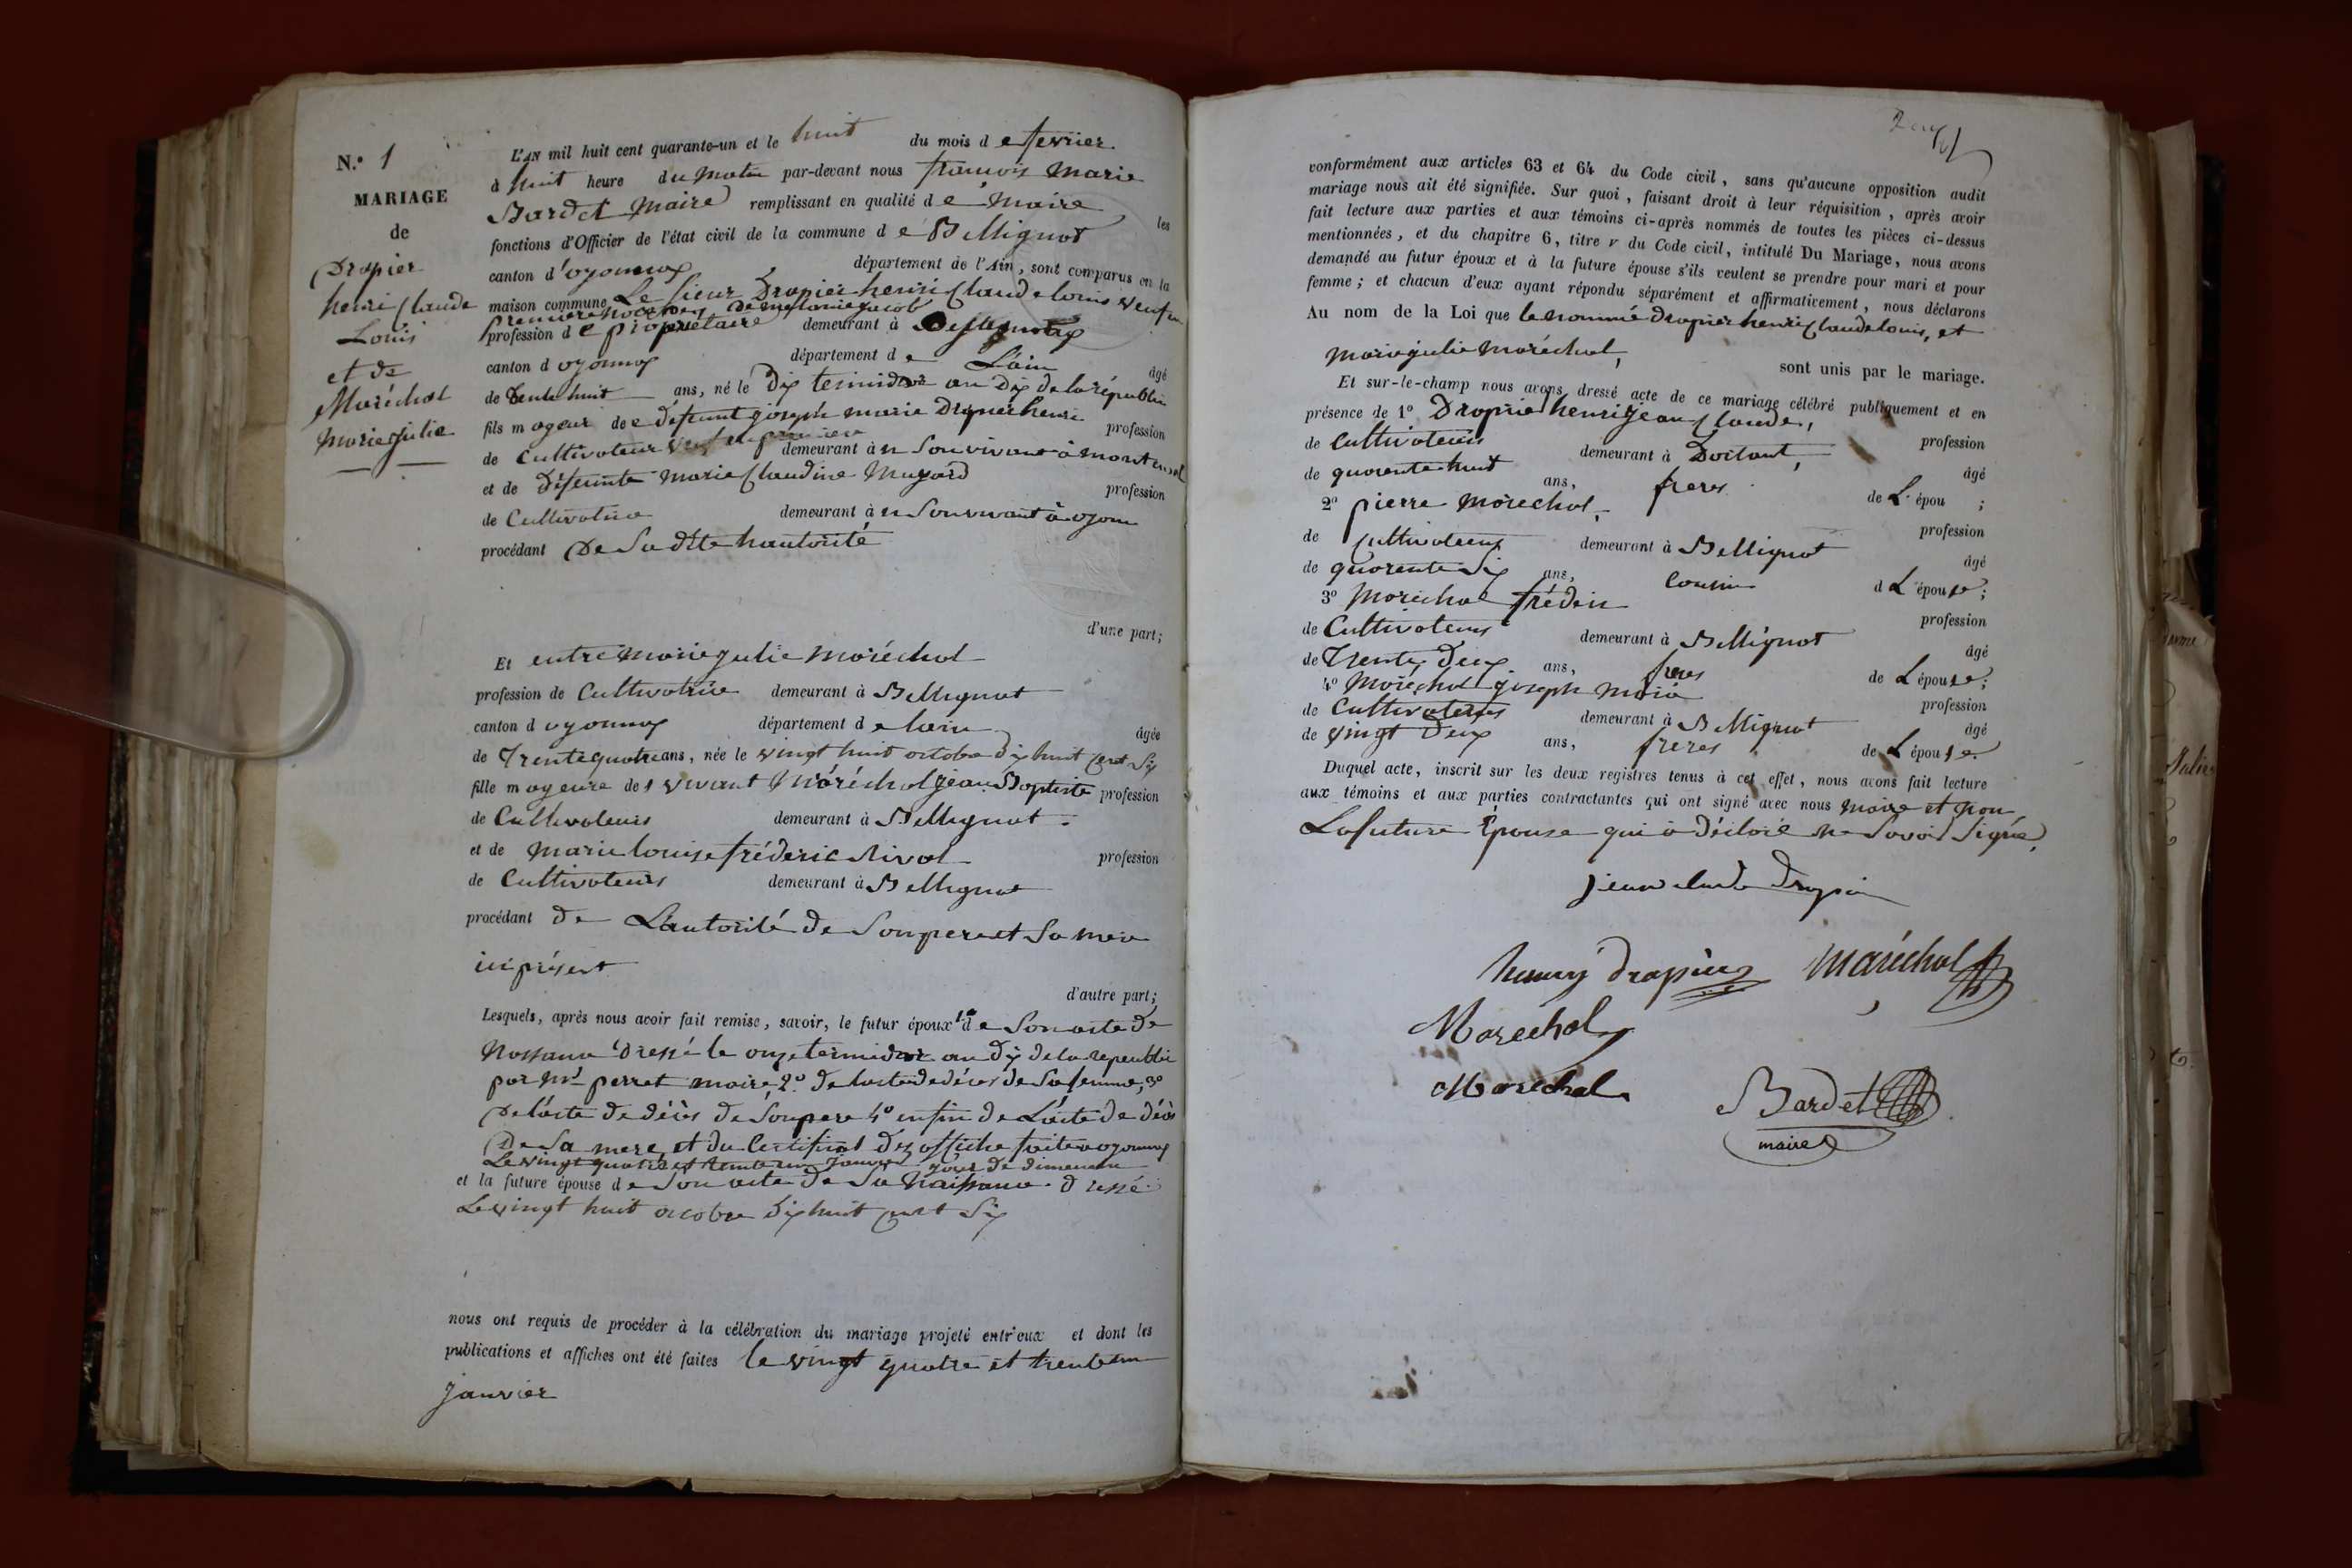 N.º 1
MARIAGE
de
Drapier
henri Claude
Louis
et de
Maréchal
marie julie
L'AN mil huit cent quarante-un et le huit du mois d e fevrier
à huit heure du matin par-devant nous françois marie
Bardet maire remplissant en qualité d e maire les
fonctions d'Officier de l'état civil de la commune d e Bellignat
canton d'oyonnax département de l'Ain, sont comparus en la
maison commune Le sieur Drapier henri Claude louis veuf en
premiere noce de
profession d e propriétaire demeurant à Bellignat
canton d oyonnax département d e L'ain âgé
de trente huit ans, né le dix termidor an dix de la républic
fils m ageur de e défeunt joseph marie Drapier henri profession
de cultivateur demeurant à n son vivant à
et de défeunte marie Claudine profession
de Cultivatrice demeurant à n son vivant à oyon
procédant De sa dte hautorité
d'une part;
Et entre marie julie maréchal
profession de Cultivatrice demeurant à Bellignat
canton d oyonnax département d e lain âgée
de Trente quatre ans, née le vingt huit octobre dix huit cent six
fille m ageure de s vivant Maréchal jean Baptiste profession
de Cultivateurs demeurant à Bellignat
et de marie louise fréderic Rivol profession
de Cultivateurs demeurant à Bellignat
procédant de L'autorité de son pere et sa mere
ici présent
d'autre part;
Lesquels, après nous avoir fait remise, savoir, le futur époux 1º d e son acte de
nessance dressé le onze termidor an dix de la republic
par mr perret maire 2º de l'acte de déces de sa femme, 3º
De l'acte de décès de son pere 4º enfin de L'acte de décès
De sa mere, et du Certificat des affiche faite a oyonnax
Le vingt quatre et trente un janvier jour de dimenche
et la future épouse d e son acte de sa naissance dressé
Le vingt huit octobre dix huit cent six
nous ont requis de procéder à la célébration du mariage projeté entr'eux et dont les
publications et affiches ont été faites le vingt quatre et trente un
janvier
conformément aux articles 63 et 64 du Code civil, sans qu'aucune opposition audit
mariage nous ait été signifiée. Sur quoi, faisant droit à leur réquisition, après avoir
fait lecture aux parties et aux témoins ci-après nommés de toutes les pièces ci-dessus
mentionnées, et du chapitre 6, titre v du Code civil, intitulé Du Mariage, nous avons
demandé au futur époux et à la future épouse s'ils veulent se prendre pour mari et pour
femme; et chacun d'eux ayant répondu séparément et affirmativement, nous déclarons
Au nom de la Loi que le nommé drapier henri Claude louis, et
marie julie maréchal, sont unis par le mariage.
Et sur-le-champ nous avons dressé acte de ce mariage célébré publiquement et en
présence de 1º Drapier henri jean Claude, profession
de cultivateurs demeurant à Dortant, âgé
de quarente huit ans, freres de L' épou ;
2º pierre marechal, profession
de cultivateurs demeurant à Bellignat âgé
de quarente six ans, cousin d L épouse;
3º Marechal fréderic profession
de Cultivateurs demeurant à Bellignat âgé
de Trente deux ans, freres de L épouse;
4º Maréchal joseph marie profession
de Cultivateurs demeurant à Bellignat âgé
de vingt deux ans, freres de L épouse.
Duquel acte, inscrit sur les deux registres tenus à cet effet, nous avons fait lecture
aux témoins et aux parties contractantes qui ont signé avec nous maire et non
La future épouse qui à déclaré ne savoir signée
jean claude Drapier
henry drapier maréchal
Marechal
Marechal
Bardet
maire